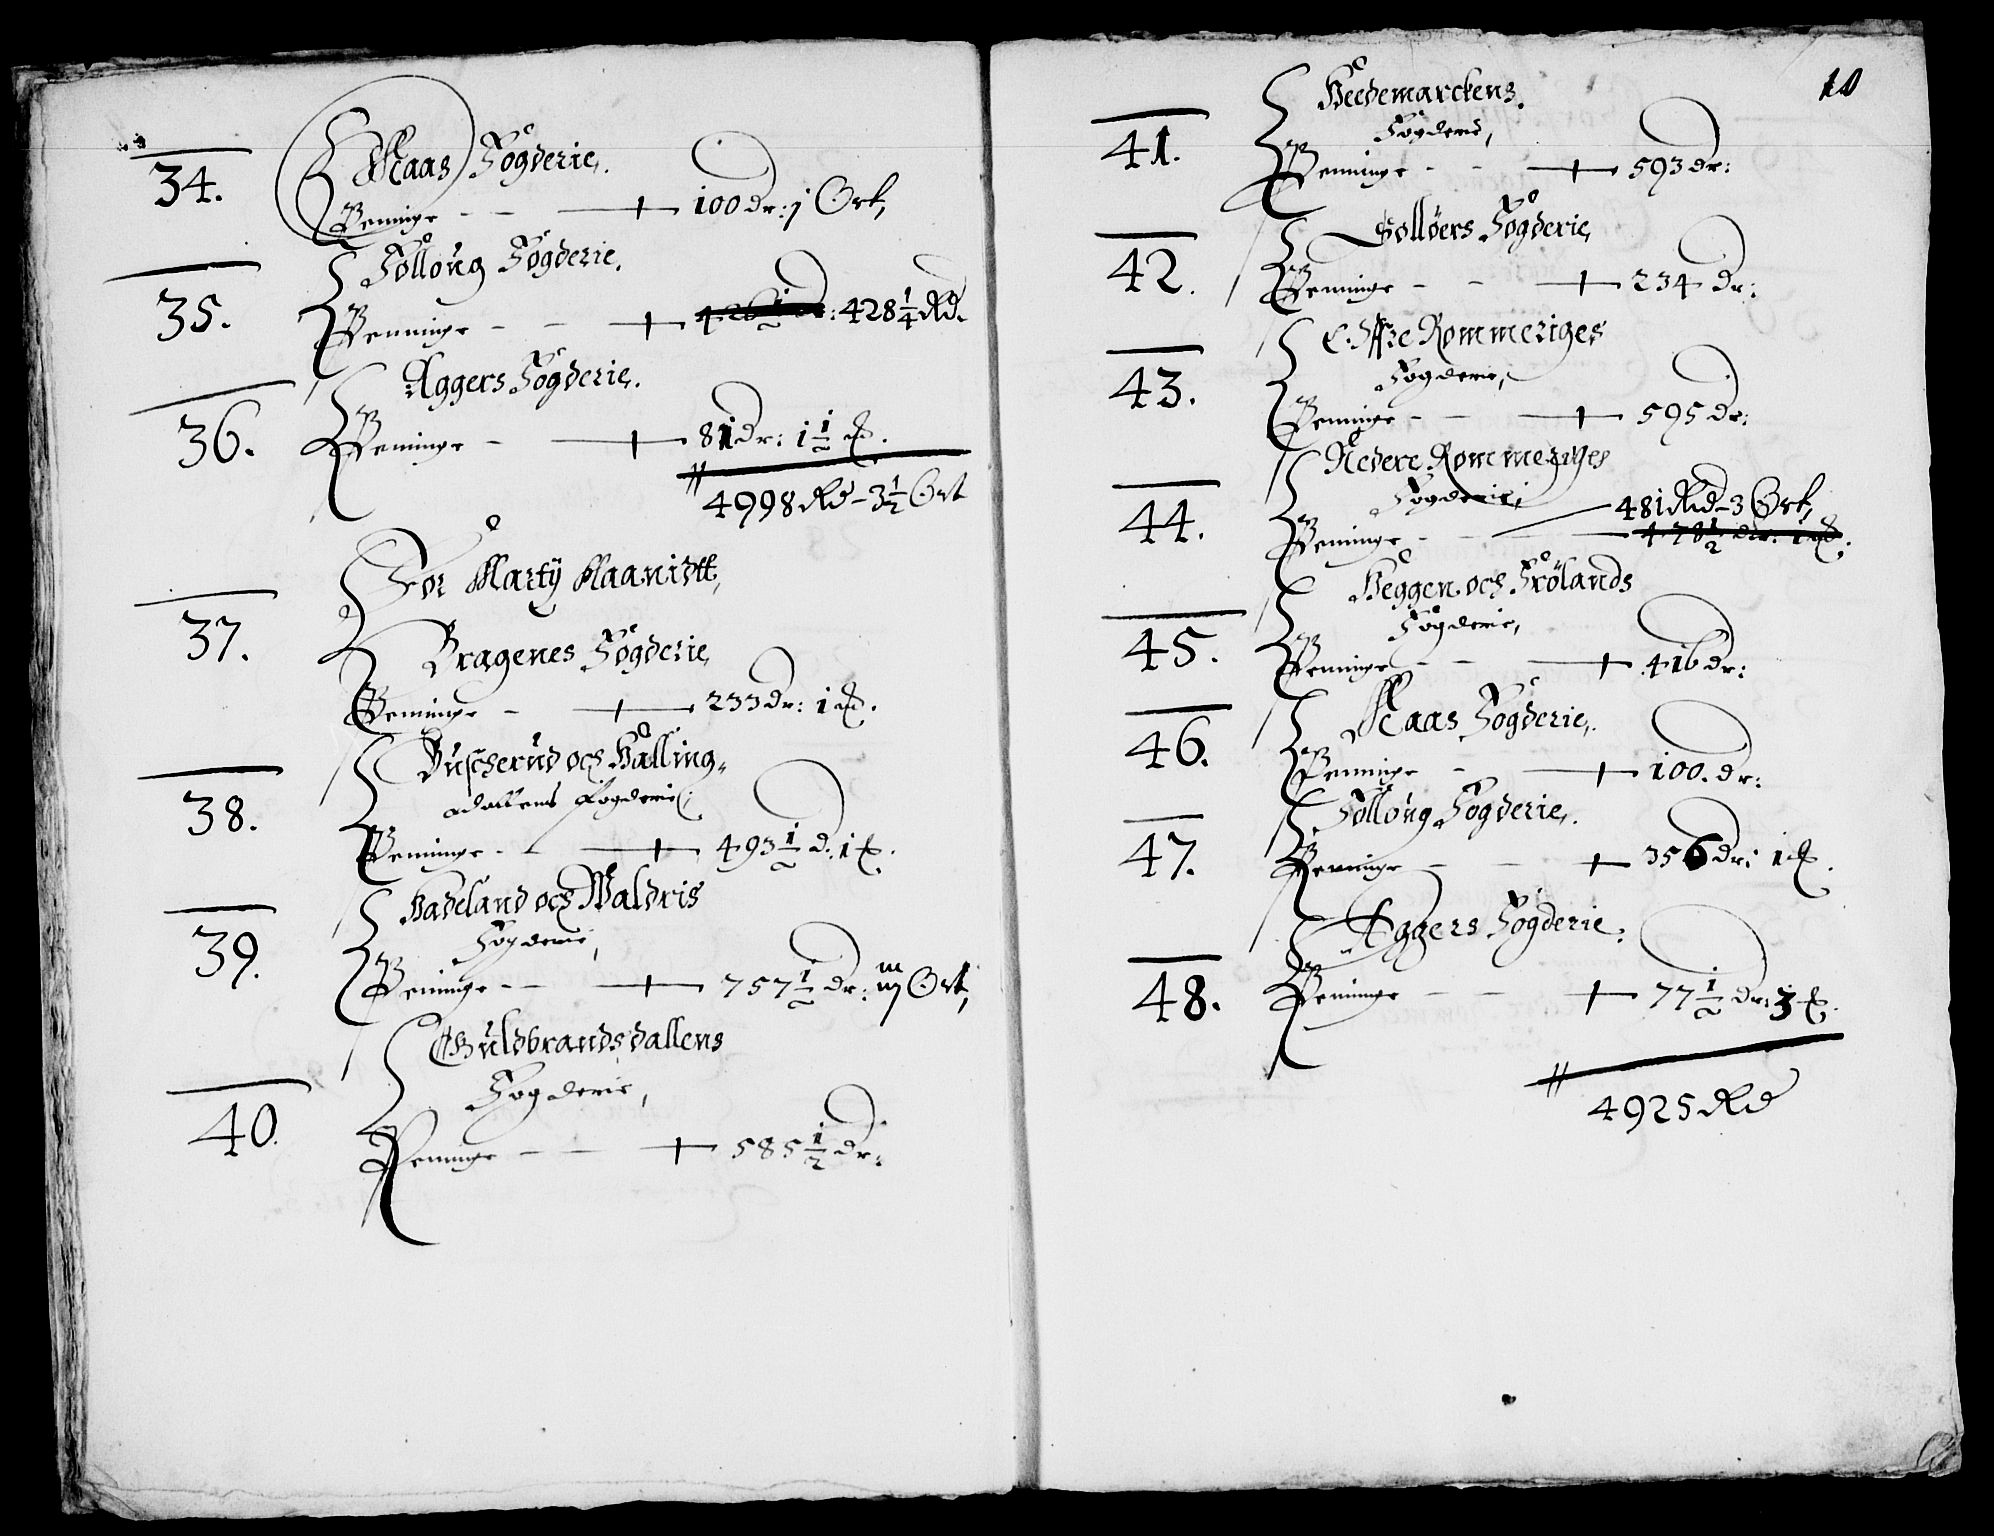 34.
Raas Fogderie,.
Peninge - - + 100 dr: j Ort,
35.
Folloug Fogderie.
Penninge - - + 426½ dr: 428¼ Rd.
36.
Aggers Fogderie.
Peninge - + 81 dr: 1½ ß.
4998 Rd - 3½ Ort
37.
For Martÿ Maanidtt,
Bragenes Fogderie,
Peninge - + 233 dr: 1 ß.
38.
Buscherud och Halling-
dallens Fogderie:
Peninge - - + 493½ d: 1 ß.
39.
Hadeland och Waldris
Fogderie,
Peninge - - + 757½ dr: Ort,
40.
Guldbrandsdallens
Fogderie,
Peninge - - + 585½ dr:
10
41.
Heedemarckens.
Fogderie,
Penninge - - + 593 dr:
42.
Sollöers Fogderie,
Penninge - - + 234 dr:
43.
Öffre Rommeriges
Fogderie,
Penninge - - + 595 dr:
44.
Nedere Rommeriges
Fogderie,
481 Rd - 3 Ort,
Peninge - - 478½ dr: 1 ß:
45.
Heggen och Frölands
Fogderie,
Penninge - - + 416 dr:
46.
Raas Fogderie,.
Penninge - + 100. dr:
47.
Follöug Fogderie,.
Penninge - - + 356 dr: 1 ß.
48.
Aggers Fogderie:
Peninge - - + 77½ dr: 3 ß.
4925 Rd